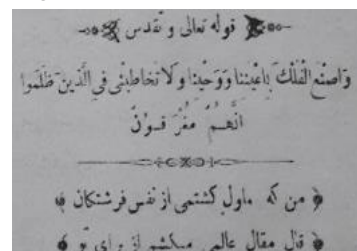 قوله تعالى و تقدس
وَاصْنَعِ الْفُلْكَ بِاَعْيُنِنا وَوَحْيِنا وَلا تُخاطِبْنى فى الَّذينَ ظَلَمُوا
اِنَّهُمْ مُغْرَقُونَ
من که ملول کشتمی از نفس فرشتکان
قال مقال عالمی میکشم از برای تو